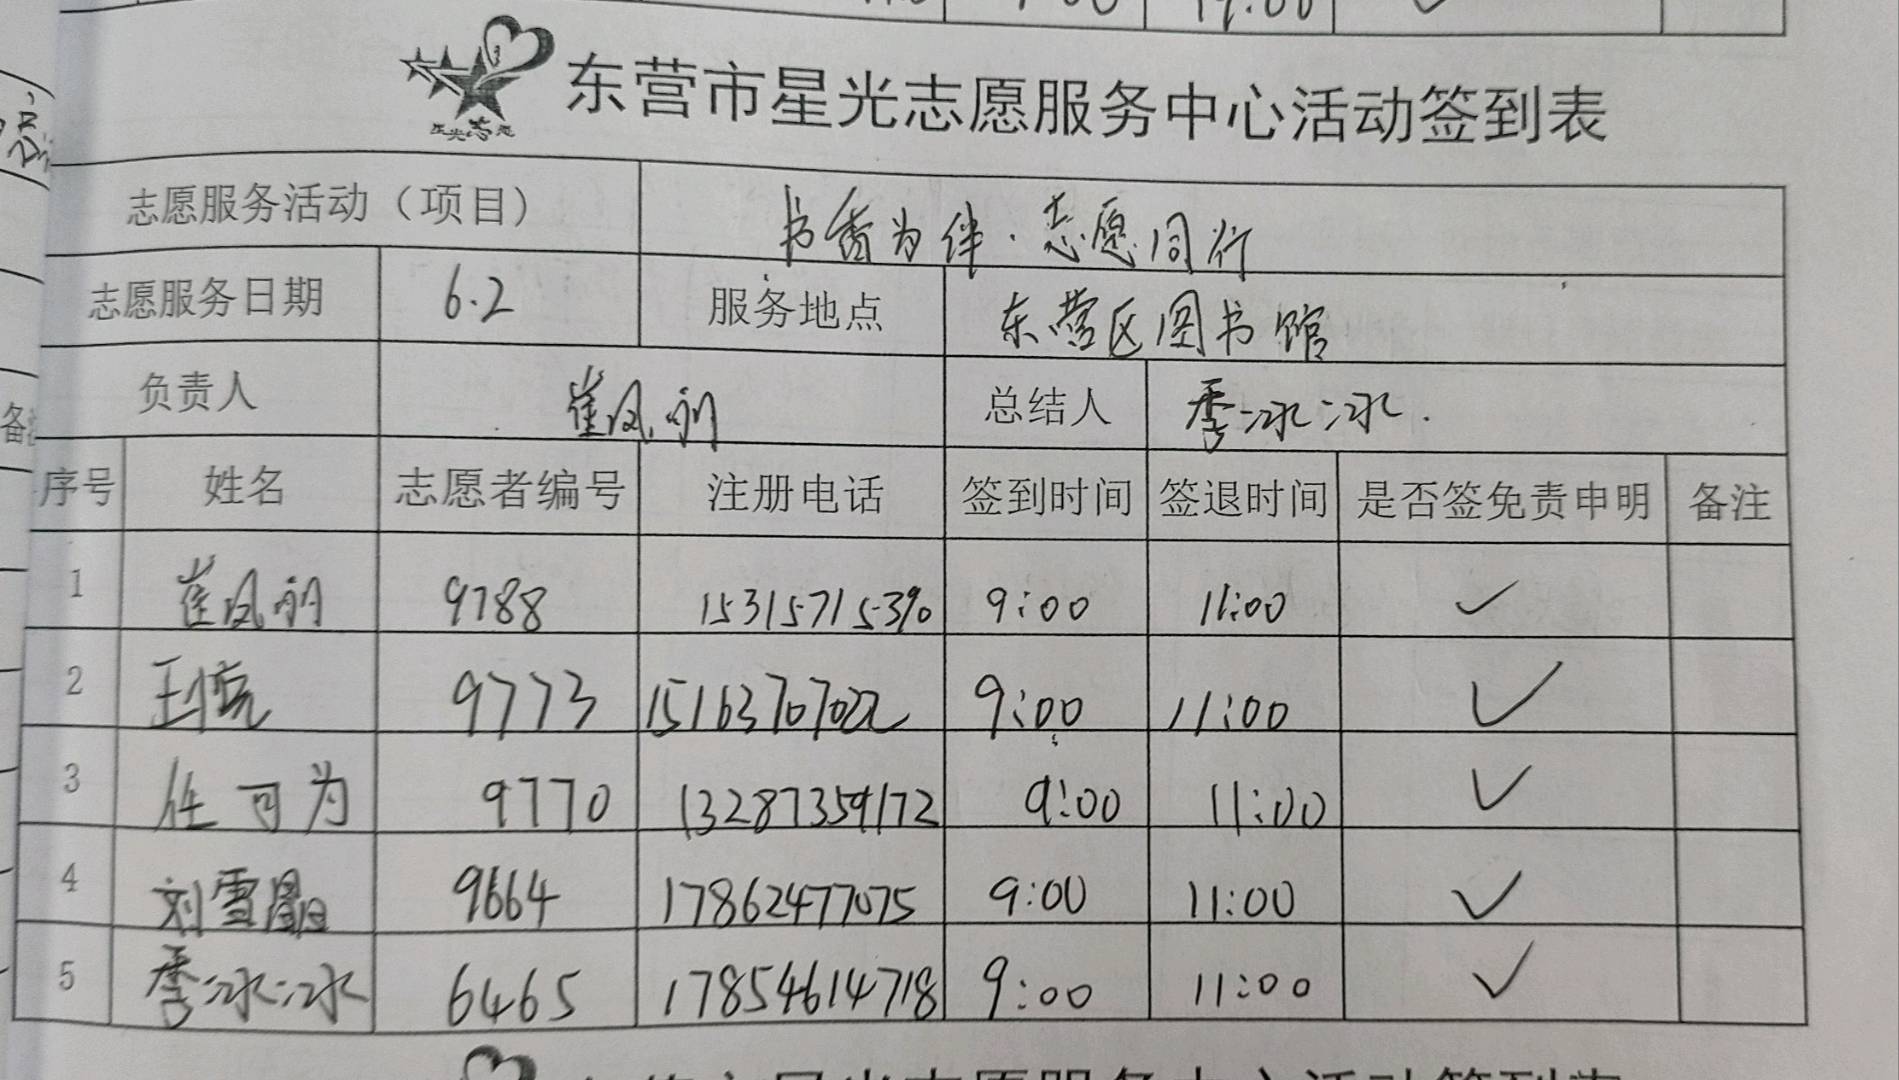 9:00 19:00 ✓
星光志愿
东营市星光志愿服务中心活动签到表
志愿服务活动（项目） 书香为伴·志愿同行
志愿服务日期 6.2 服务地点 东营区图书馆
负责人 崔凤 总结人 季冰冰.
序号 姓名 志愿者编号 注册电话 签到时间 签退时间 是否签免责申明 备注
1 崔凤 9788 15315715390 9:00 11:00 ✓
2 9773 9:00 11:00 ✓
3 任可为 9770 13287359172 9:00 11:00 ✓
4 刘雪 9664 17862477075 9:00 11:00 ✓
5 季冰冰 6465 17854614718 9:00 11:00 ✓